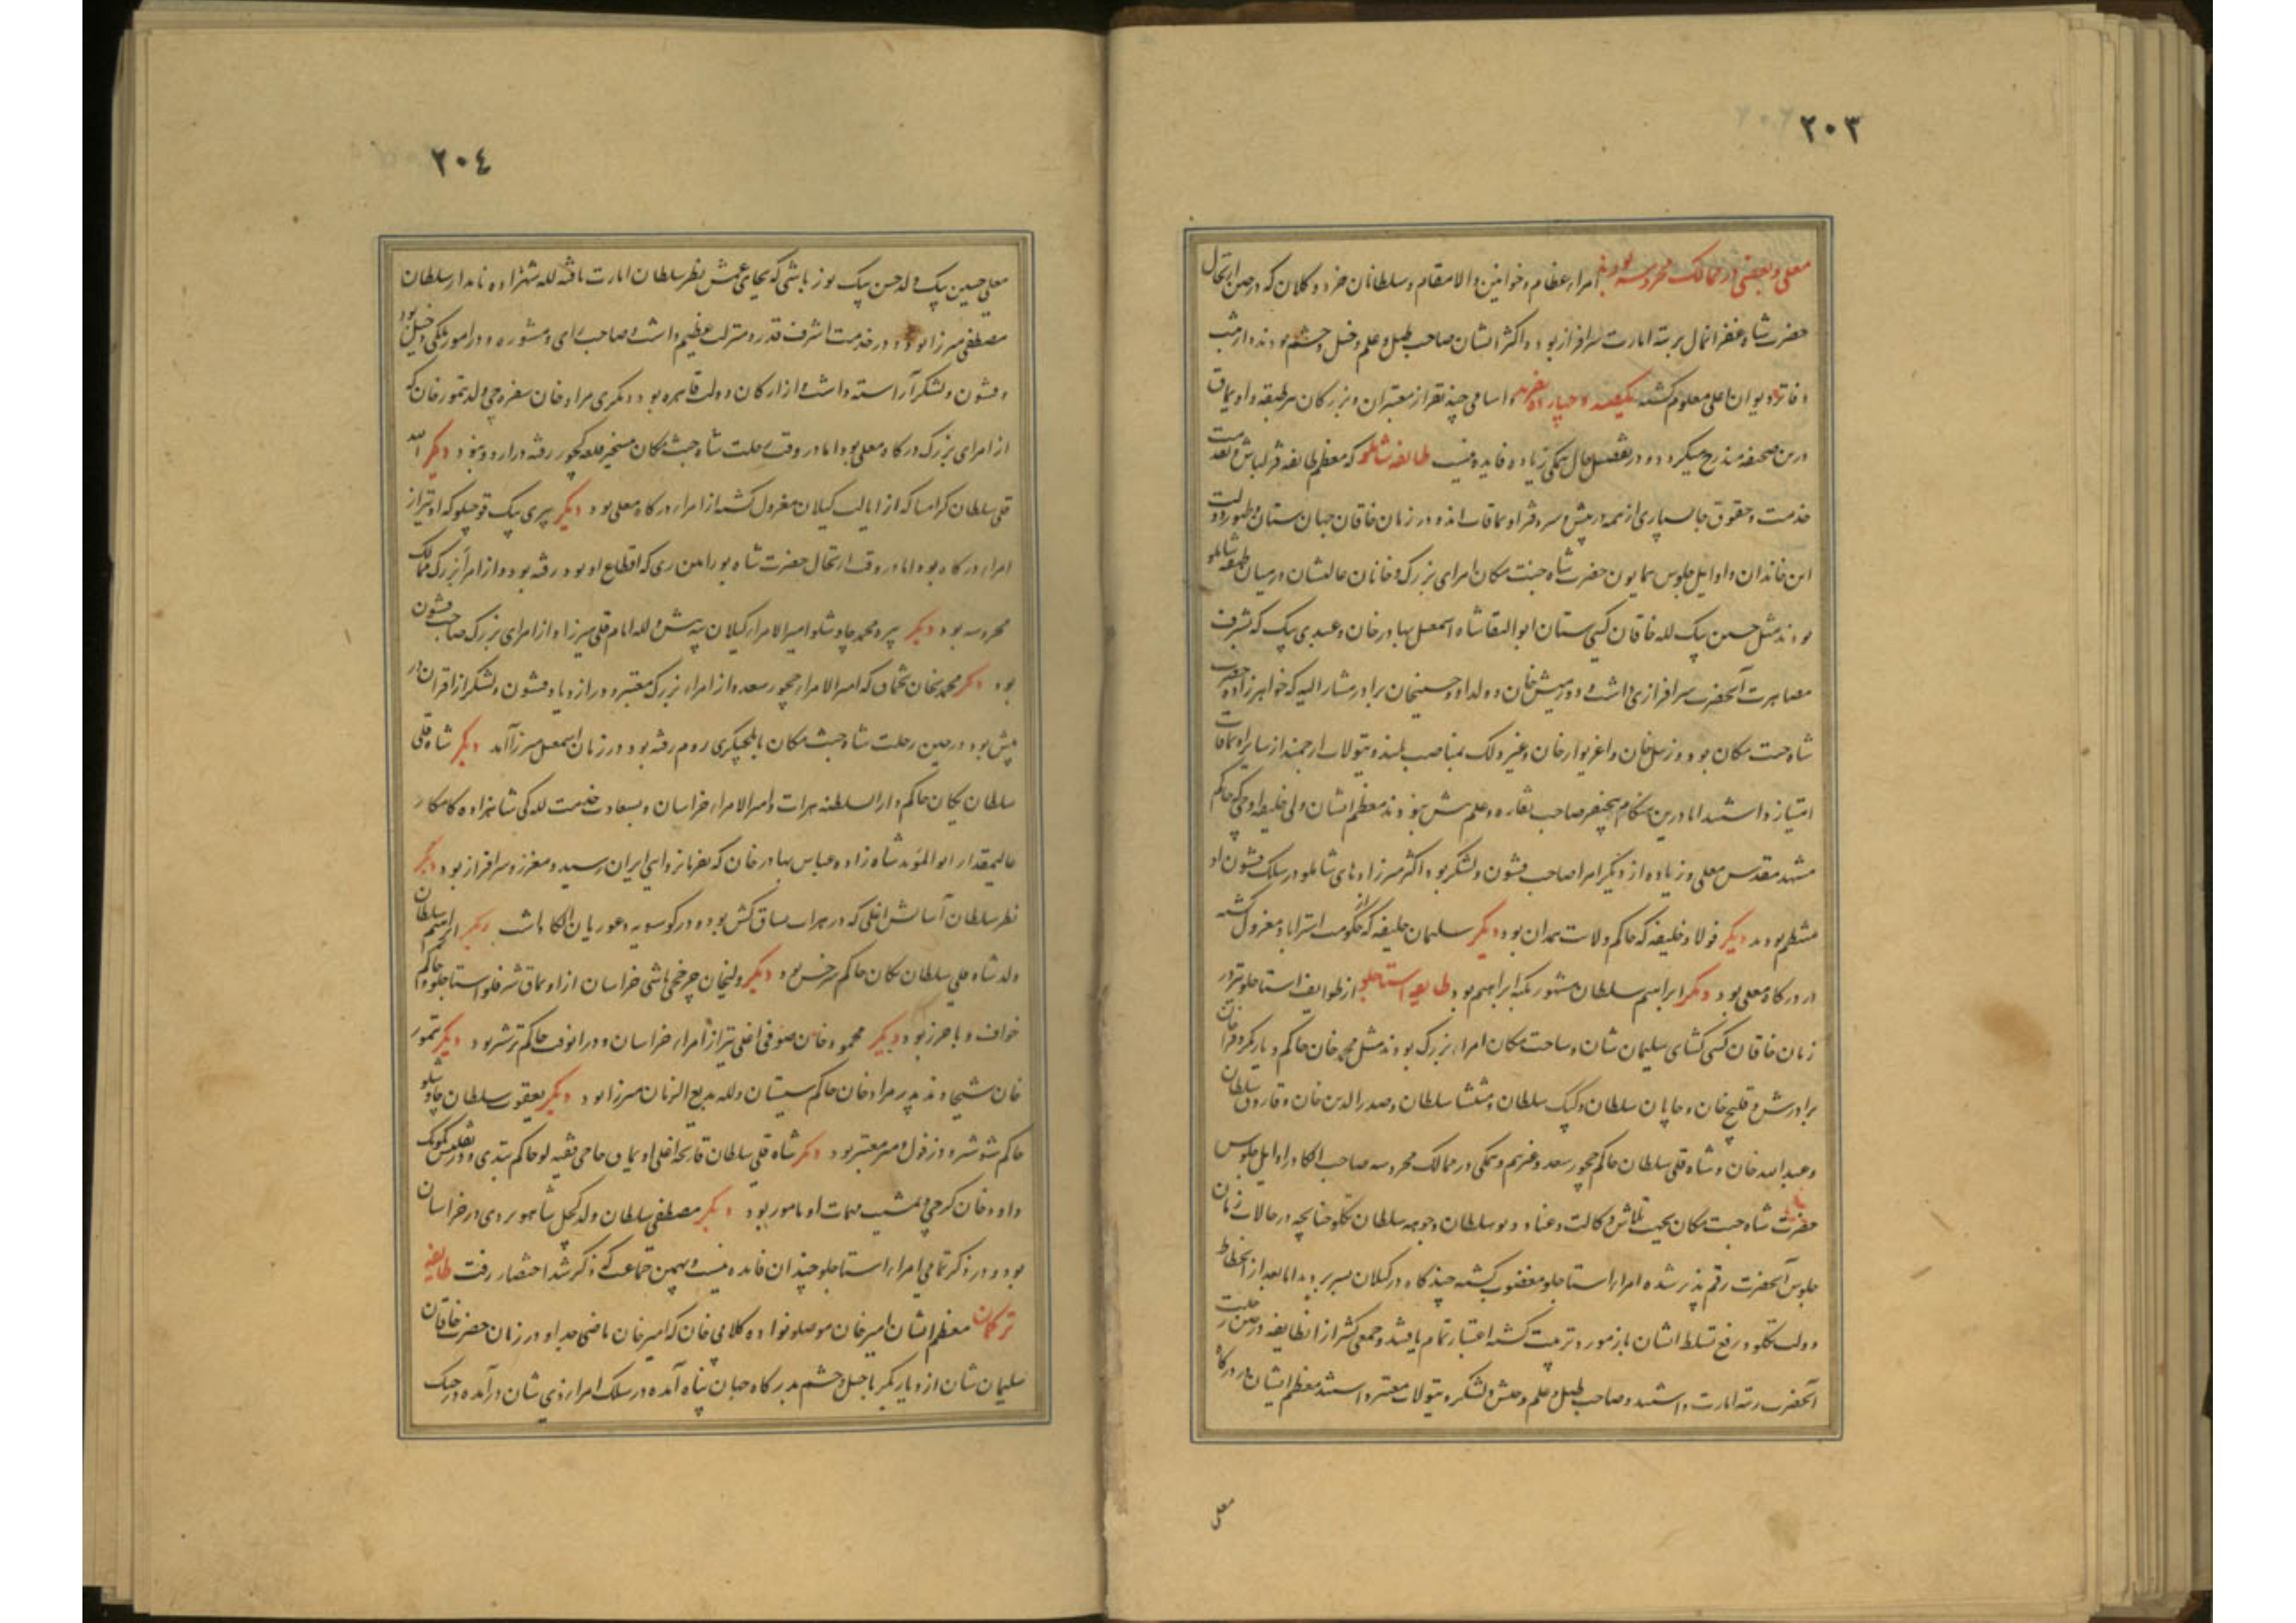 ٢٠٣
معلی و بعضی در ممالک محروسه بودند امراء عظام و خوانین والامقام و سلطانان خرد و کلان که در حین ارتحال
حضرت شاه غفران مآل برتبه امارت سرافراز بودند و اکثر ایشان صاحب طبل و علم و خیل و حشم بودند و از ثبت
دفاتر دیوان اعلی معلوم گشته یکصد و چهارده نفرند اسامی چند نفر از معتبران و بزرگان هر طبقه و اویماق
درین صحیفه مندرج میگردد و در تفصیل حال همگی زیاده فایده نیست طایفه شاملو که معظم طایفه قزلباش و بقدمت
خدمت و حقوق جانسپاری از همه در پیش و سر دفتر اویماقات اند و در زمان خاقان جهان ستان و ظهور دولت
این خاندان و اوایل جلوس همایون حضرت شاه جنت مکان امرای بزرگ و خانان عالیشان در میان طبقه شاملو
بودند مثل حسین بیک لله خاقان گیتی ستان ابوالبقا شاه اسمعیل بهادرخان و عبدی بیک که بشرف
مصاهرت آنحضرت سرافرازی داشت و دورمیش خان ولد او و حسینخان برادر مشارالیه که خواهرزاده حضرت
شاه جنت مکان بود و زینل خان و اغزیوار خان و غیر ذلک بمناصب بلند و تیولات ارجمند از سایر اویماقات
امتیاز داشتند اما درین هنگام هیچ نفر صاحب نقاره و علم بیش نبودند معظم ایشان ولی خلیفه اوجی که حاکم
مشهد مقدس معلی و زیاده از دیگر امرا صاحب قشون و لشکر بود و اکثر میرزاده های شاملو در سلک قشون او
منتظم بودند دیگر فولاد خلیفه که حاکم ولایت همدان بود دیگر سلیمان خلیفه که از حکومت استراباد معزول گشته
در درگاه معلی بود دیگر ابراهیم سلطان مشهور بکبه ابراهیم بود طایفه استاجلو از طوایف استاجلو نیز در
زمان خاقان گیتی گشای سلیمان شان و شاه جنت مکان امراء بزرگ بودند مثل محمد خان حاکم دیاربکر و قراخان
برادرش و قلیج خان و چایان سلطان و کپک سلطان و منتشا سلطان و صدرالدین خان و قاروق سلطان
و عبدالله خان و شاه قلی سلطان حاکم چخورسعد و غیرهم و همگی در ممالک محروسه صاحب الکا در اوایل جلوس
حضرت شاه جنت مکان بجهت تلاش وکالت و عناد دیو سلطان و چوهه سلطان تکلو چنانچه در حالات زمان
جلوس آنحضرت رقم پذیر شده امراء استاجلو مغضوب گشته چندگاه در گیلان بسر بردند اما بعد از انحطاط
دولت تکلو و رفع تسلط ایشان باز مورد تربیت گشته اعتبار تمام یافتند و جمعی کثیر از آن طایفه در حین رحلت
آنحضرت رتبه امارت داشتند و صاحب طبل و علم و جیش و لشکر و تیولات معتبر داشتند معظم ایشان در درگاه
معلی
٢٠٤
معلی حسین بیک ولد حسن بیک یوزباشی که بجای عمش نظر سلطان امارت یافته لله شهزاده نامدار سلطان
مصطفی میرزا بود و در خدمت اشرف قدر و منزلت عظیم داشت و صاحب رای و مشوره در امور ملکی دخیل بود
و قشون و لشکر آراسته داشت و از ارکان دولت قاهره بود دیگری مراد خان سفره چی ولد تیمور خان که
از امرای بزرگ درگاه معلی بود اما در وقت رحلت شاه جنت مکان بتسخیر قلعه کجور رفته در اردو نبود دیگر الله
قلی سلطان که از ایالت گیلان معزول گشته از امراء درگاه معلی بود دیگر پیری بیک قوچیلو که او نیز از
امراء درگاه بود اما در وقت ارتحال حضرت شاه بورامین ری که اقطاع او بود رفته بود و از امراء بزرگ ممالک
محروسه بود دیگر پیره محمد چاوشلو امیرالامراء گیلان بیه پیش و لله امام قلی میرزا و از امرای بزرگ صاحب قشون
بود دیگر محمدی خان تخماق که امیرالامراء چخورسعد و از امراء بزرگ معتبر و در ازدیاد قشون و لشکر از اقران در
پیش بود و در حین رحلت شاه جنت مکان بایلچیگری روم رفته بود و در زمان اسمعیل میرزا آمد دیگر شاه قلی
سلطان یکان حاکم دارالسلطنه هرات و امیرالامراء خراسان و بسعادت خدمت للگی شاهزاده کامکار
عالیمقدار ابوالمؤید شاه زاده عباس بهادرخان که بفرمانروایی ایران رسید و معزز و سرافراز بود دیگر
نظر سلطان آسایش اغلی که در هرات یساق کش بود و در کوسویه و غوریان الکا داشت دیگر ابراهیم سلطان
ولد شاه علی سلطان یکان حاکم سرخس بود دیگر ولیخان چرخچی باشی خراسان از اویماق شرفلو استاجلو و حاکم
خواف و باخرز بود دیگر محمود خان صوفی اغلی نیز از امراء خراسان و در آنوقت حاکم ترشیز بود دیگر تیمور
خان شیخاوند پدر مراد خان حاکم سیستان و لله بدیع الزمان میرزا بود دیگر یعقوب سلطان چاوشلو
حاکم شوشتر و دزفول و میر معتبر بود دیگر شاه قلی سلطان قارنجه اغلی اویماق حاجی فقیه لو حاکم
داود خان گرجی و تمشیت مهمات او مامور بود دیگر مصطفی سلطان ولد کچل شاهویردی در خراسان
بود و در ذکر تمامی امراء استاجلو چندان فایده نیست و بهمین جماعت که ذکر شد اختصار رفت طایفه
ترکمان معظم ایشان امیرخان موصلو نواده گلابی خان که امیرخان ماضی جد او در زمان حضرت خاقان
سلیمان شان از دیاربکر با خیل و حشم بدرگاه جهان پناه آمده در سلک امراء ذی شان درآمده در جنگ